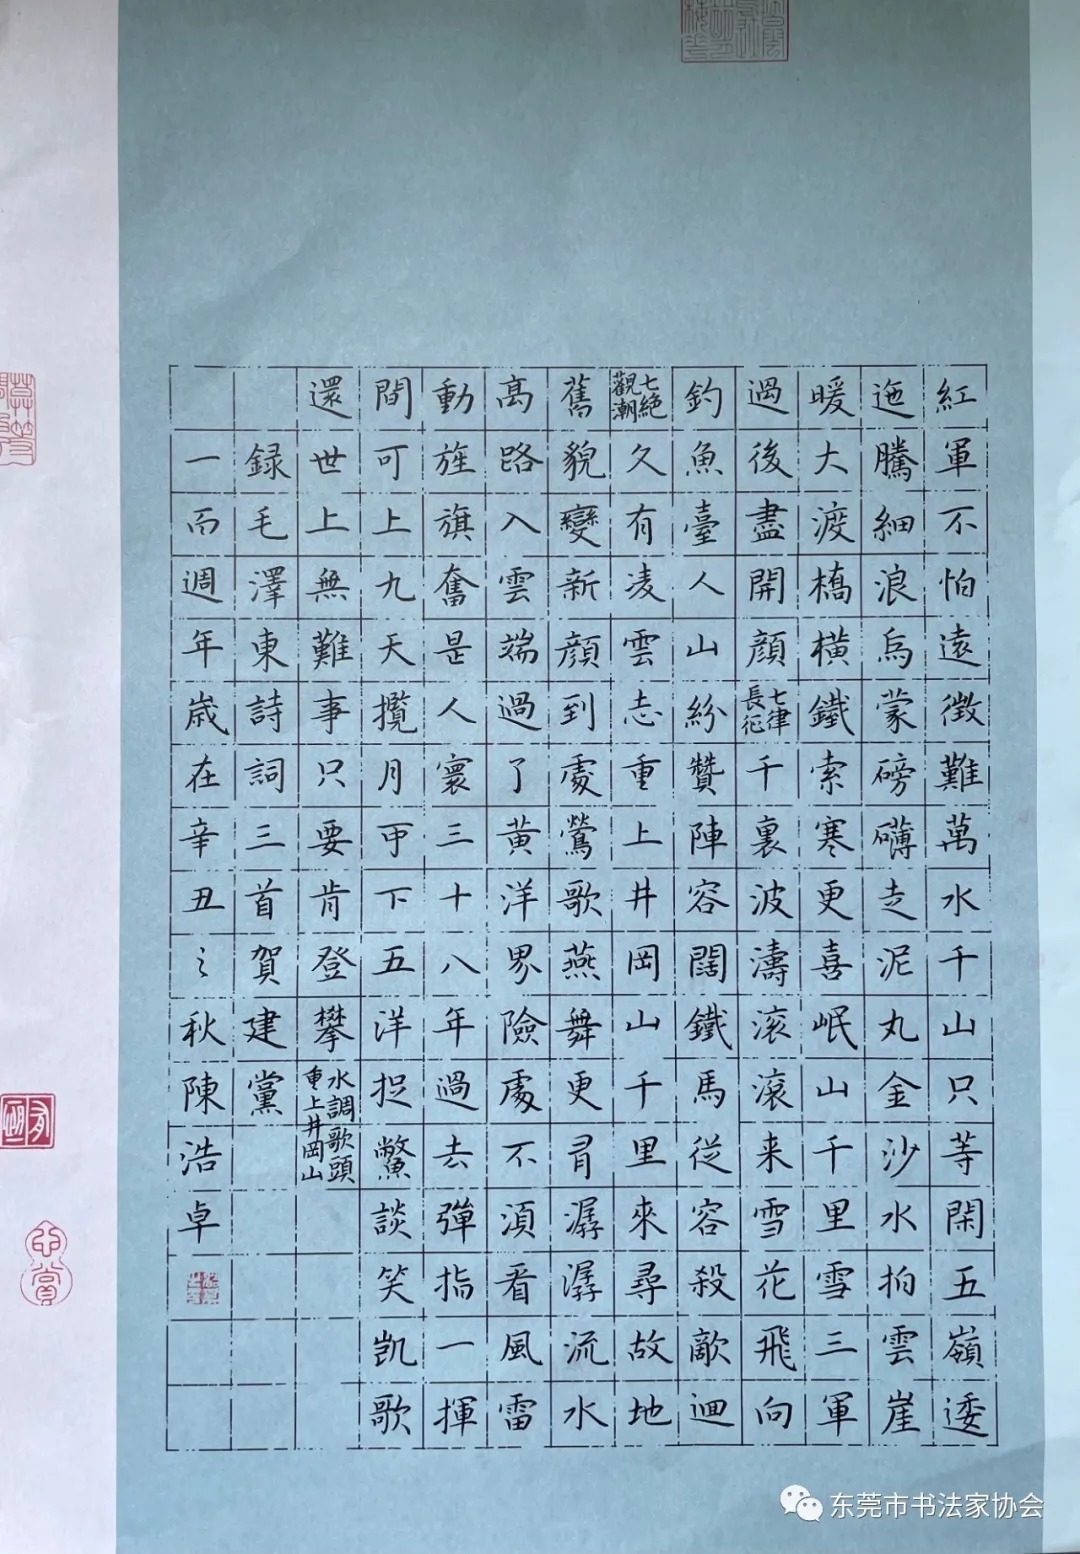 紅軍不怕遠徴難萬水千山只等閑五嶺逶
迤騰細浪烏蒙磅礴走泥丸金沙水拍雲崖
暖大渡橋橫鐵索寒更喜岷山千里雪三軍
過後盡開顔七律長征千裏波濤滚滾来雪花飛向
釣魚臺人山紛贊陣容闊鐵馬從容殺敵迴
七絶觀潮久有凌雲志重上井岡山千里來尋故地
舊貌變新顔到處鶯歌燕舞更有潺潺流水
高路入雲端過了黄洋界險處不須看風雷
動旌旗奮是人寰三十八年過去彈指一揮
間可上九天攬月可下五洋捉鱉談笑凱歌
還世上無難事只要肯登攀水調歌頭重上井岡山
録毛澤東詩詞三首賀建黨
一百週年歲在辛丑之秋陳浩卓
东莞市书法家协会